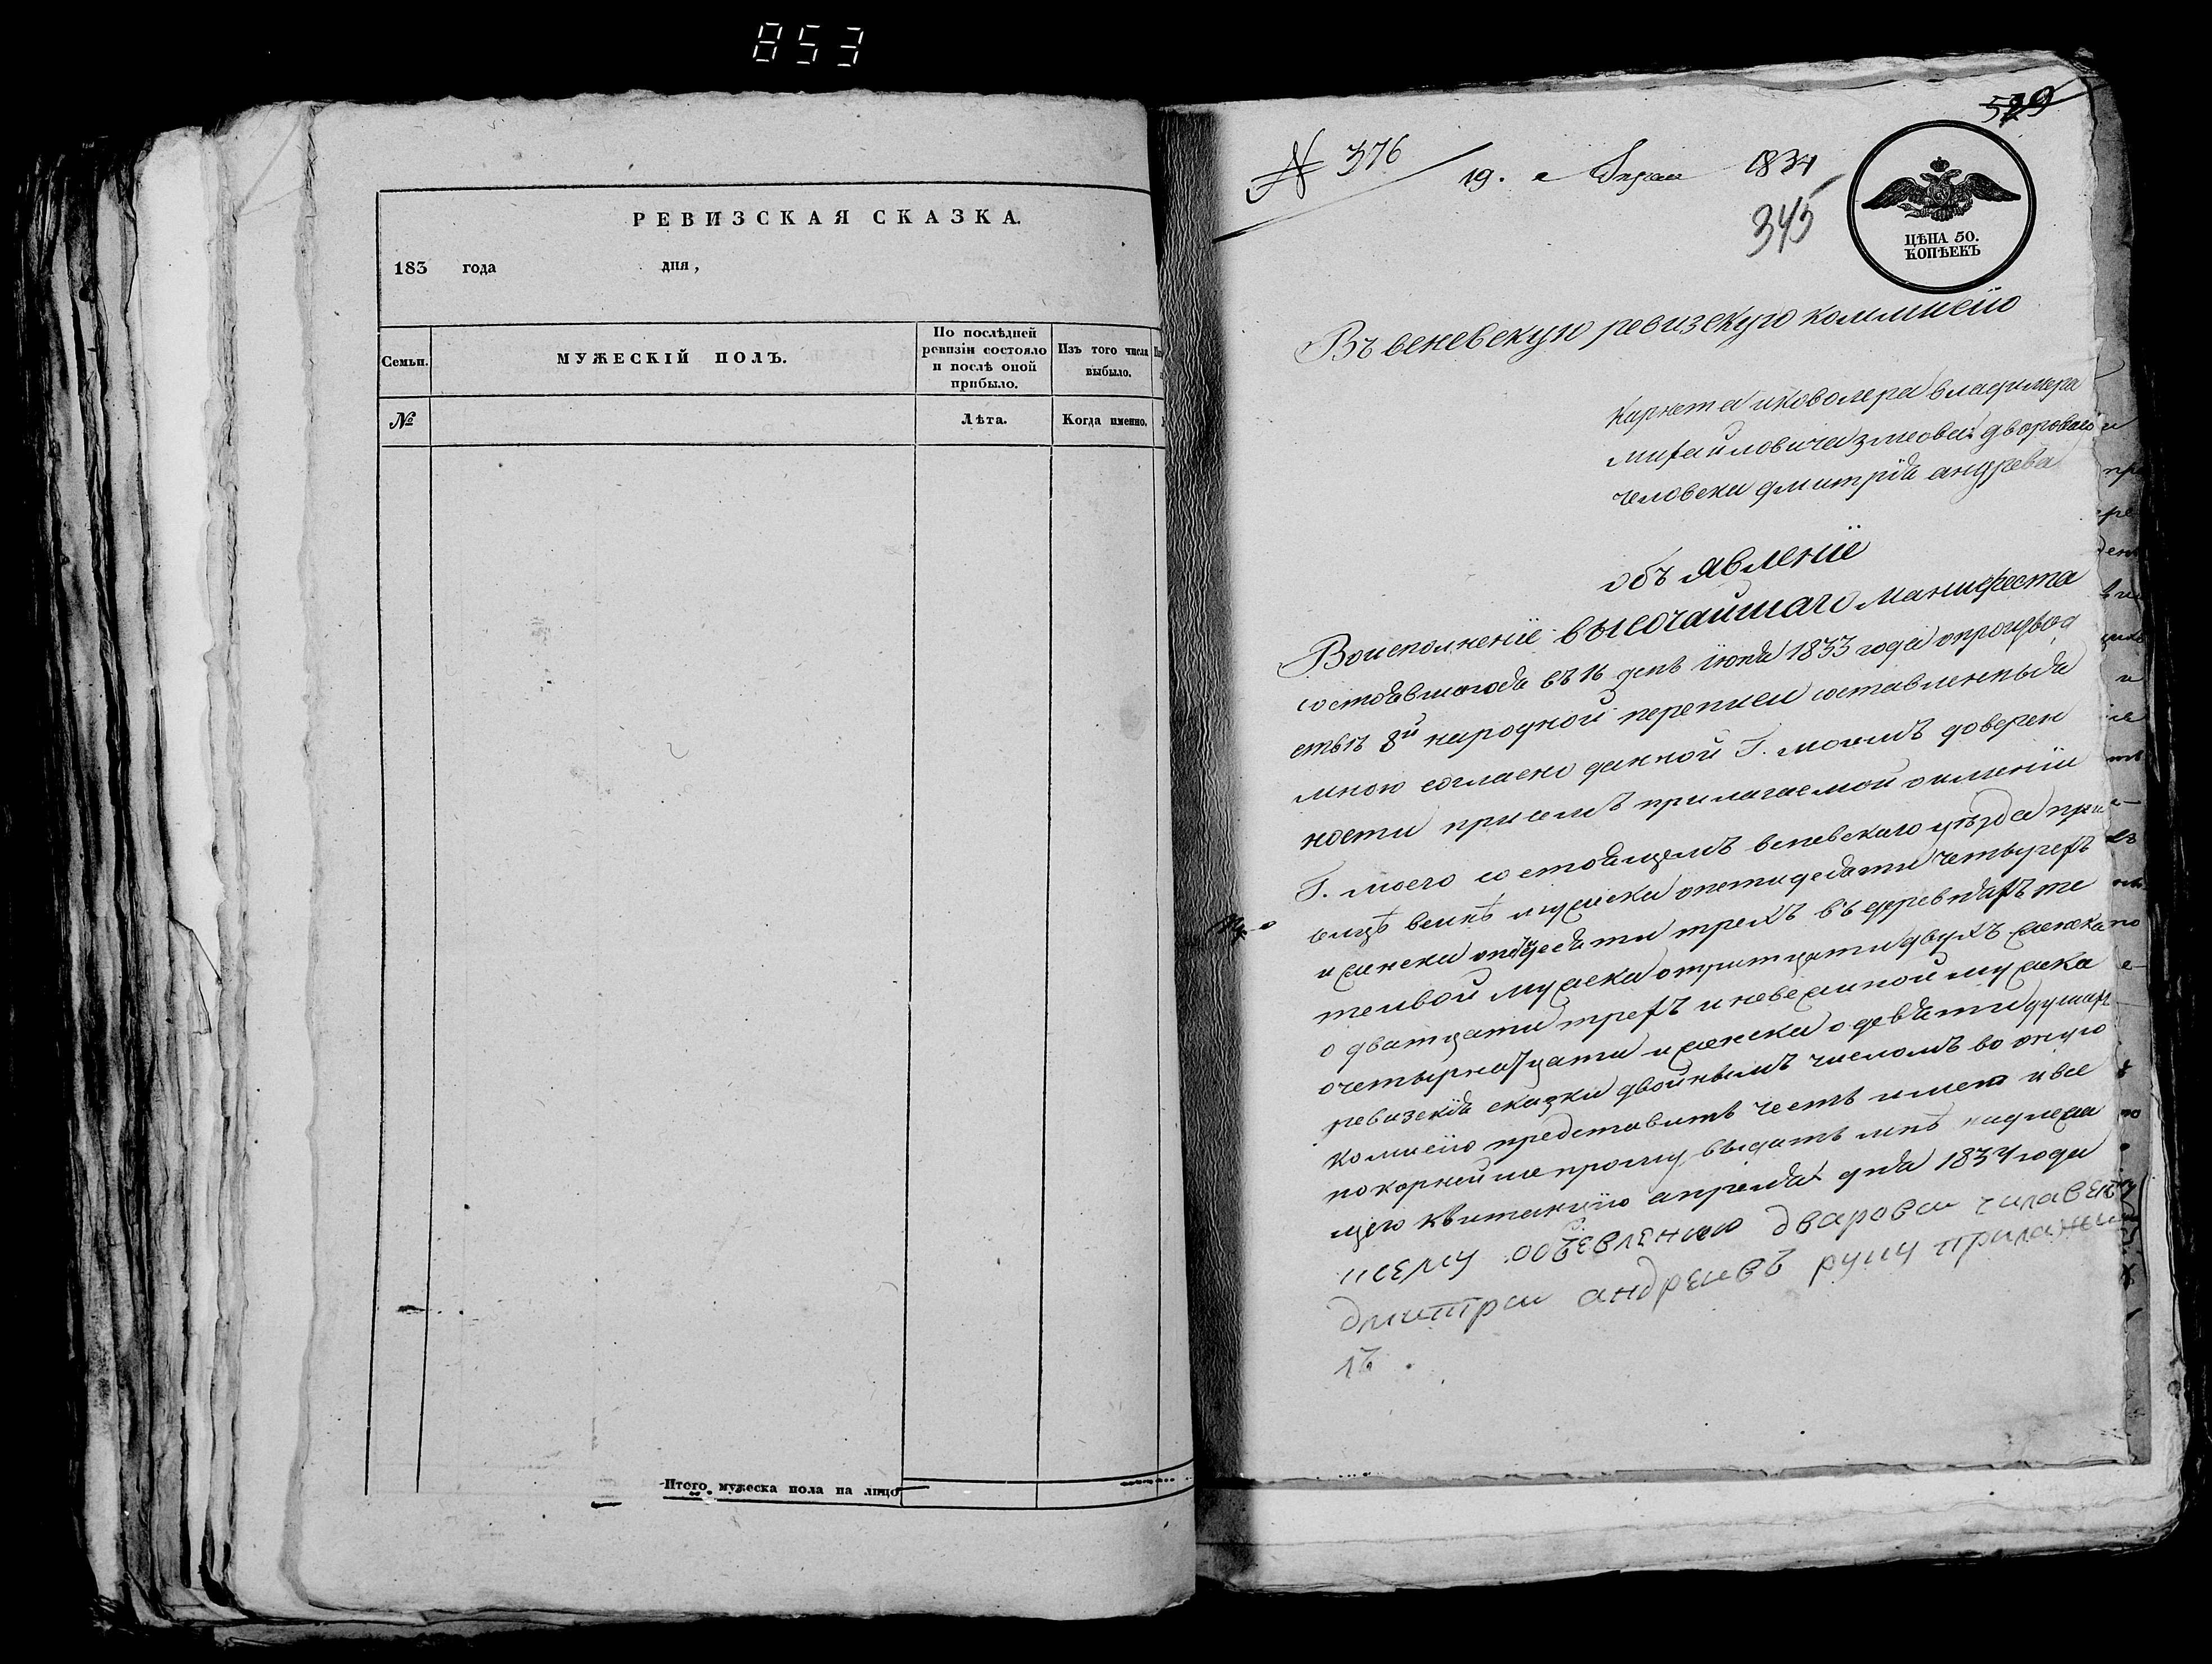 853
РЕВИЗСКАЯ СКАЗКА.
183 года дня,
Семьи.
МУЖЕСКІЙ ПОЛЪ.
По послѣдней ревизіи состояло и послѣ оной прибыло.
Изъ того числа выбыло.
№
Лѣта.
Когда именно.
Итого мужеска пола на лицо
№ 376
19. Апреля 1834
345
ЦѢНА 50.
КОПѢЕКЪ
Въ веневскую ревизскую коммисію
Карнета иковолера владимера
михайловича змеова дворового
человека дмитрія андрева
объявленіе
Воисполненіе высочайшаго манифеста
состоявшагося въ 16 день іюня 1833 года опроизвод
ствѣ 8й народной переписи составленныя
мною согласно данной Г. моимъ доверен
ности присемъ прилагаемой оименіи
Г. моего состоящемъ веневскаго уѣзда при
селцѣ мужска опетидесяти четырехъ
и женска трехъ въ деревняхъ те
мужска отритцати двухъ женска
о дватцати трехъ и мужска
очетырнатцати и женска о девяти душах
ревизскія сказки двойнымъ числомъ во оную
комисію представить честь имею и все
покорнѣйше прошу выдать мнѣ надлежа
щею квитанцію апреля дня 1834 года
ксему объевлению дваровои чилавек
дмитреи андреивъ руку приложи
лъ.